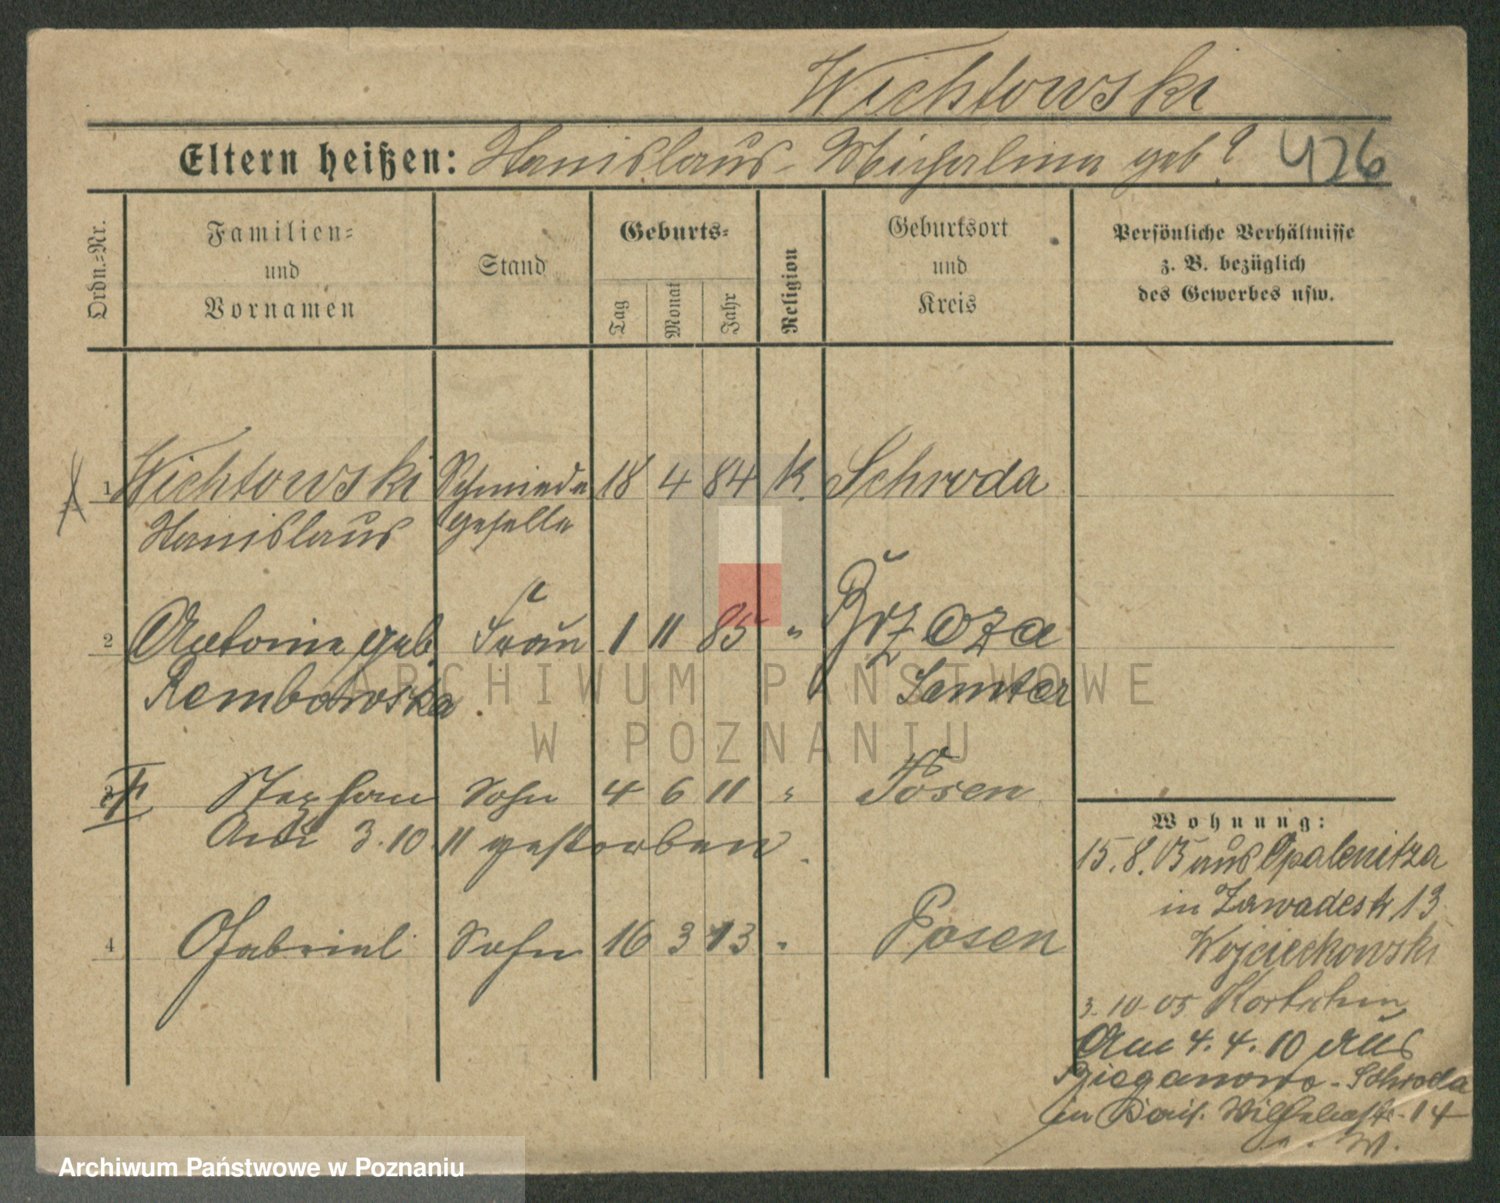 Wichtowski
Eltern heißen: Stanislaus - Michalina geb ? 426
Ordn.=Nr.
Familien=
und
Vornamen
Stand
Geburts=
Tag
Monat
Jahr
Religion
Geburtsort
und
Kreis
Persönliche Verhältnisse
z. B. bezüglich
des Gewerbes usw.
1 Wichtowski Schmiede 18 4 84 K. Schroda
Stanislaus geselle
2 Antonie geb. Frau 1 11 85 " Brzoza
Rembowska Samter
3 Stephan Sohn 4 6 11 " Posen
Am 3.10.11 gestorben.
4 Gabriel Sohn 16 3 13 " Posen
Wohnung:
15.8.05 aus Opalenitza
in Zawadestr 13
Wojcieckowski
3.10.05 Kortschin
Am 4.4.10 aus
Bieganowo - Schroda
in Wilhelmstr. 14
W.
ARCHIWUM PAŃSTWOWE
W POZNANIU
Archiwum Państwowe w Poznaniu